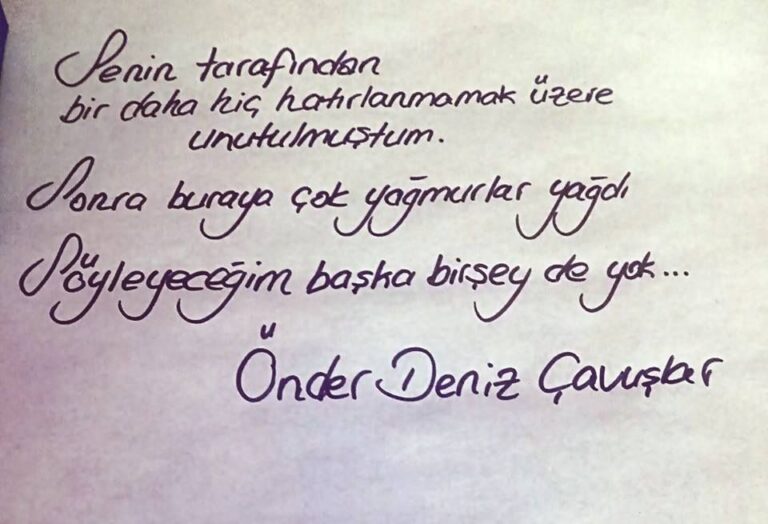 Senin tarafından
bir daha hiç hatırlanmamak üzere
unutulmuştum.
Sonra buraya çok yağmurlar yağdı
Söyleyeceğim başka birşey de yok...
Önder Deniz Çavuşlar